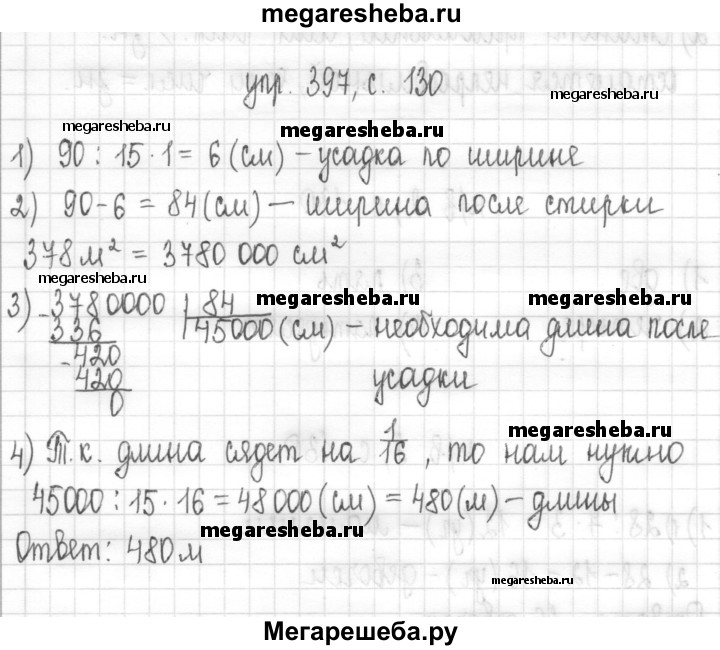 megaresheba.ru
упр. 397, с. 130
megaresheba.ru
megaresheba.ru
megaresheba.ru
1) 90 : 15 · 1 = 6 (см) – усадка по ширине
2) 90 - 6 = 84 (см) – ширина после стирки
378 м² = 3780 000 см²
megaresheba.ru
megaresheba.ru
megaresheba.ru
3) - 3780000 | 84
336 45000 (см) – необходима длина после
- 420 усадки
420
0
megaresheba.ru
4) Т.к. длина сядет на 1/16, то нам нужно
45000 : 15 · 16 = 48000 (см) = 480 (м) – длины
megaresheba.ru
Ответ: 480 м
megaresheba.ru
Мегарешеба.ру